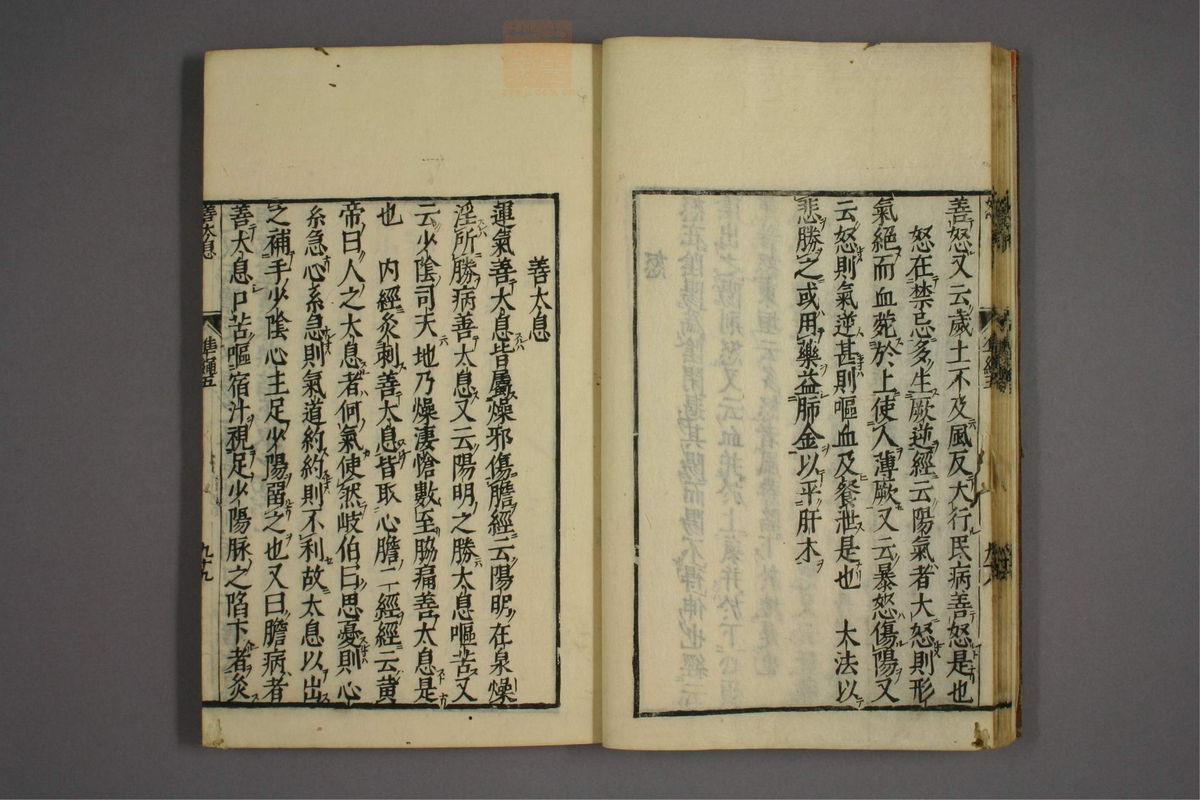 善怒又云歲土不及風反大行民病善怒是也
怒在禁忌多生厥逆經云陽氣者大怒則形
氣絕而血菀於上使人薄厥又云暴怒傷陽又
云怒則氣逆甚則嘔血及餐泄是也　大法以
悲勝之或用藥益肺金以平肝木
善太息
運氣善太息皆屬燥邪傷膽經云陽明在泉燥
淫所勝病善太息又云陽明之勝太息嘔苦又
云少陰司天地乃燥凄愴數至脇痛善太息是
也　內經灸刺善太息皆取心膽二經經云黃
帝曰人之太息者何氣使然岐伯曰思憂則心
系急心系急則氣道約約則不利故太息以出
之補手少陰心主足少陽留之也又曰膽病者
善太息口苦嘔宿汁視足少陽脉之陷下者灸
善太息
準繩五
九十九